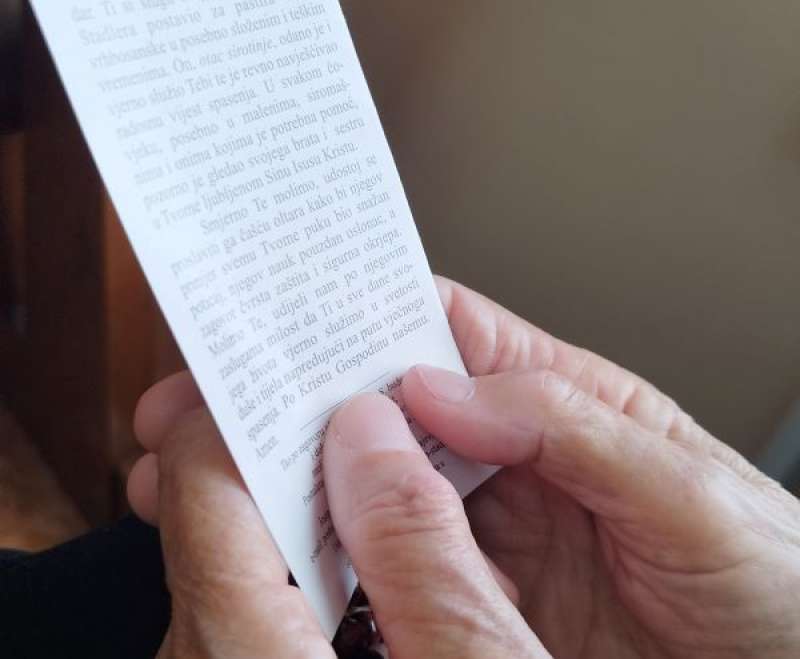 dar. Ti si slugu
Stadlera postavio za pastira
vrhbosanske u posebno složenim i teškim
vremenima. On, otac sirotinje, odano je i
vjerno služio Tebi te je revno navješćivao
radosnu vijest spasenja. U svakom čo-
vjeku, posebno u malenima, siromaš-
nima i onima kojima je potrebna pomoć,
pozorno je gledao svojega brata i sestru
u Tvome ljubljenom Sinu Isusu Kristu.
Smjerno Te molimo, udostoj se
proslaviti ga čašću oltara kako bi njegov
primjer svemu Tvome puku bio snažan
poticaj, njegov nauk pouzdan oslonac, a
zagovor čvrsta zaštita i sigurna okrjepa.
Molimo Te, udijeli nam po njegovim
zaslugama milost da Ti u sve dane svo-
jega života vjerno služimo u svetosti
duše i tijela napredujući na putu vječnoga
spasenja. Po Kristu Gospodinu našemu.
Amen.